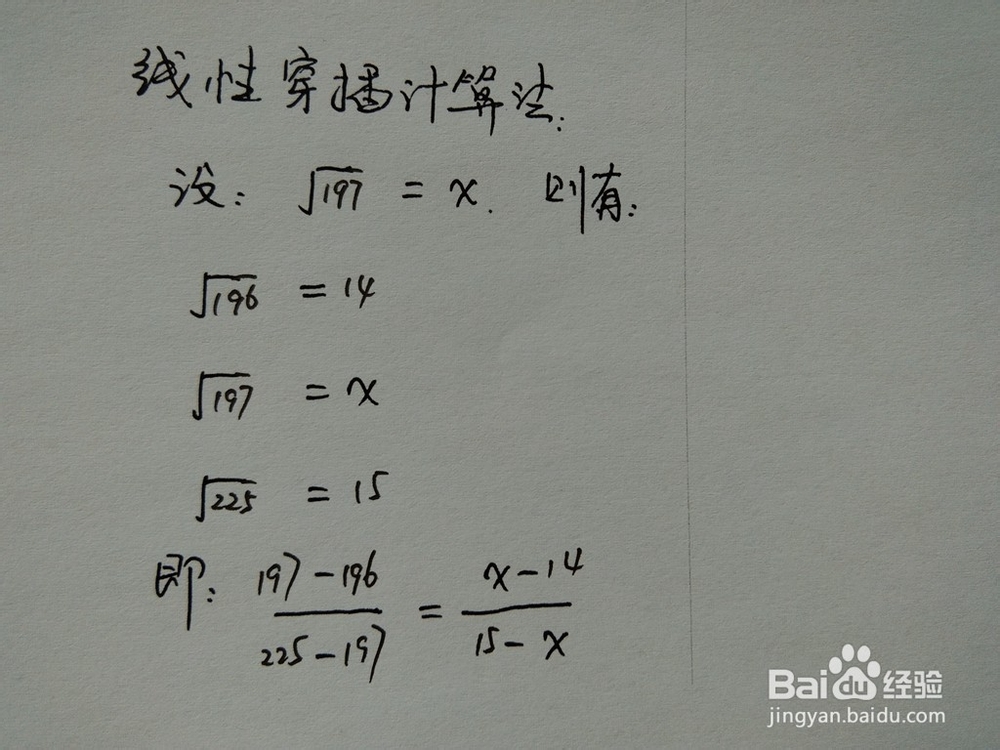 线性穿插计算法:
设: √197 = x. 则有:
√196 = 14
√197 = x
√225 = 15
即: (197-196)/(225-197) = (x-14)/(15-x)
Baidu经验
jingyan.baidu.com